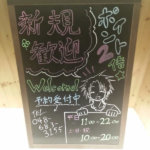 新規
歓迎
ポイント
2倍
Welcome!
予約受付中
TEL
048-
平日
11:00〜22:00
土・日・祝
10:00〜20:00